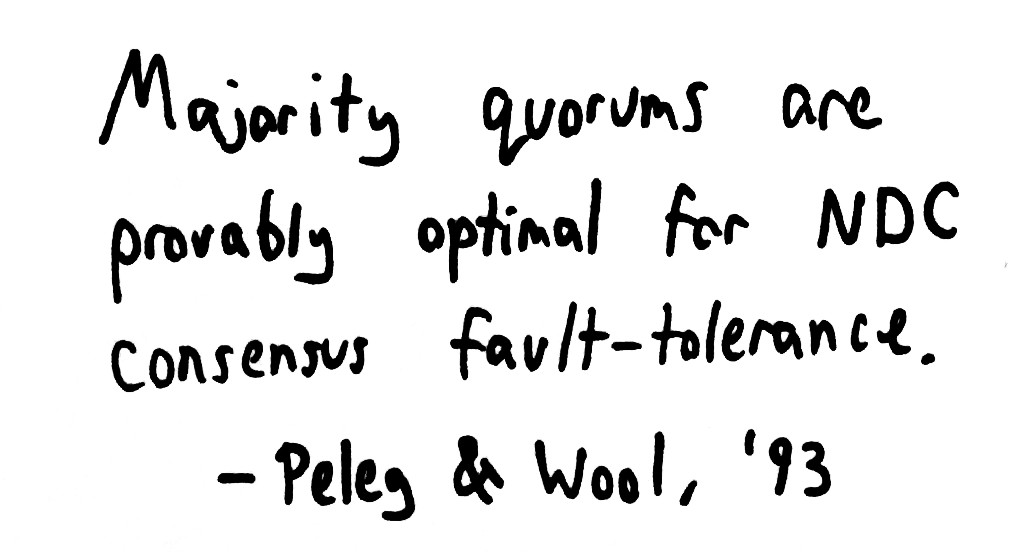 Majority quorums are
provably optimal for NDC
consensus fault-tolerance.
- Peleg & Wool, '93